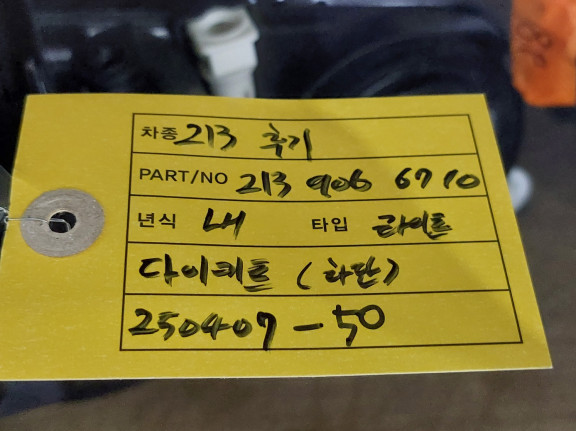 차종 213 후기
PART/NO 213 906 6710
년식 LH 타입 라이트
다이퀘트 (하단)
250407-50